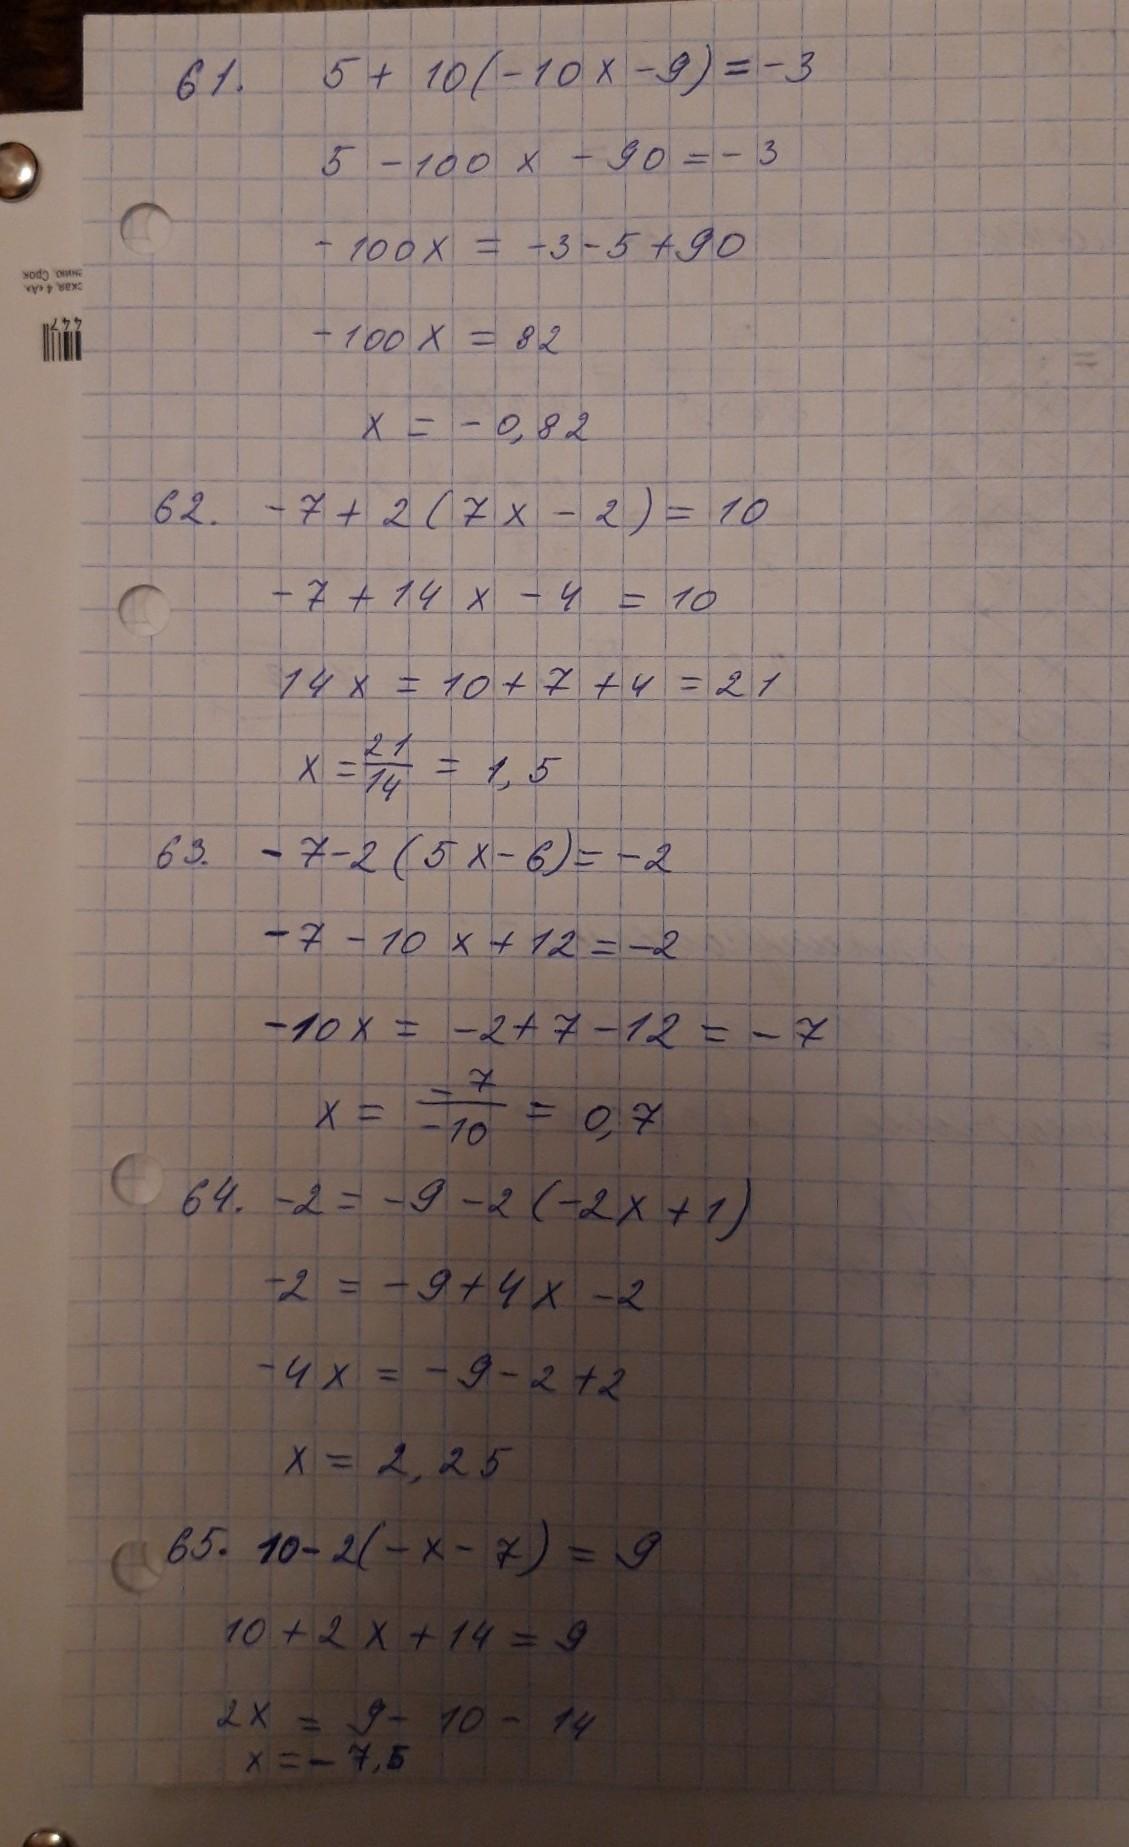 61. 5 + 10(-10x - 9) = -3
5 - 100x - 90 = -3
-100x = -3 - 5 + 90
-100x = 82
x = -0,82
62. -7 + 2(7x - 2) = 10
-7 + 14x - 4 = 10
14x = 10 + 7 + 4 = 21
x = 21/14 = 1,5
63. -7 - 2(5x - 6) = -2
-7 - 10x + 12 = -2
-10x = -2 + 7 - 12 = -7
x = -7/-10 = 0,7
64. -2 = -9 - 2(-2x + 1)
-2 = -9 + 4x - 2
-4x = -9 - 2 + 2
x = 2,25
65. 10 - 2(-x - 7) = 9
10 + 2x + 14 = 9
2x = 9 - 10 - 14
x = -7,5
нию. Срок
ская, 4 «А»
447